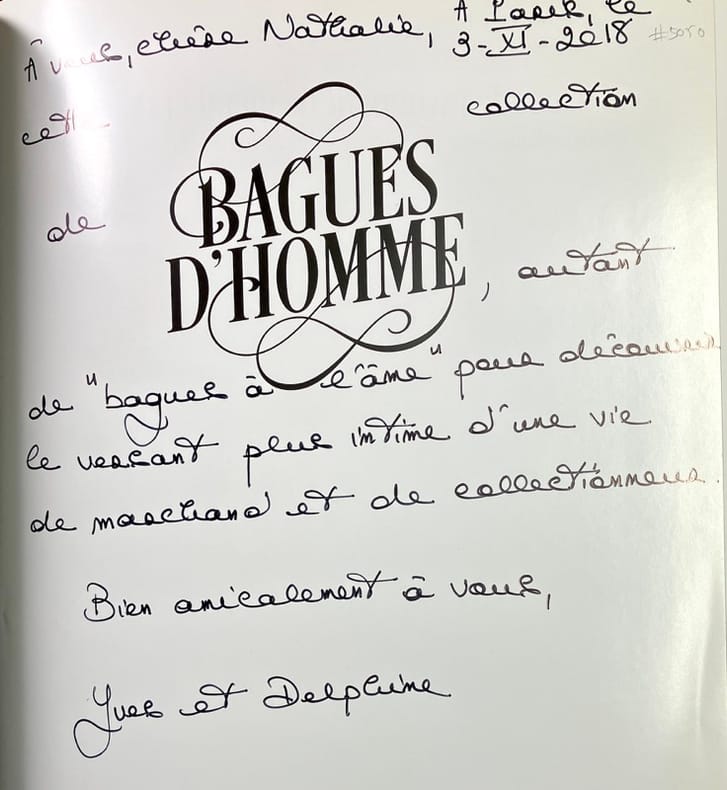 À vous, chère Nathalie, À Paris, le
3-XI-2018 #5050
cette collection
de
BAGUES
D'HOMME, autant
de "bagues à l'âme" pour découvrir
le versant plus intime d'une vie
de marchand et de collectionneur.
Bien amicalement à vous,
Yves et Delphine